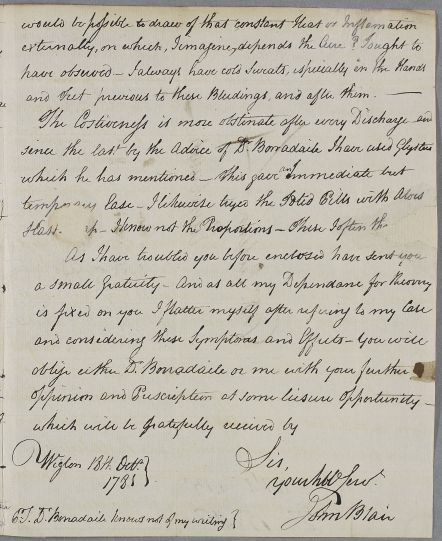 would be possible to draw of that constant Heat or Inflamation
externally, on which, I imagine, depends the Cure? I ought to
have observed – I always have cold Sweats, especially in the Hands
and Feet previous to these Bleedings, and after them. —
The Costiveness is more obstinate after every Discharge and
since the last by the Advice of Dr. Borradaile I have used Glysters
which he has mentioned – This gave Immediate but
temporary Ease – I likewise tryed the Fetid Pills with Aloes
I know not the Proportions – These I often
As I have troubled you before enclosed have sent you
a small Gratuity – And as all my Dependance for Recovery
is fixed on you I flatter myself after refering to my Case
and considering these Symptoms and Effects – You will
oblige either Dr. Borradaile or me with your further
Oppinion and Prescription at some leisure Opportunity –
which will be gratefully receved by
Sir,
Wigton 13th. Octr.
178
your
John Blair
Dr. Borradaile knows not of my writing